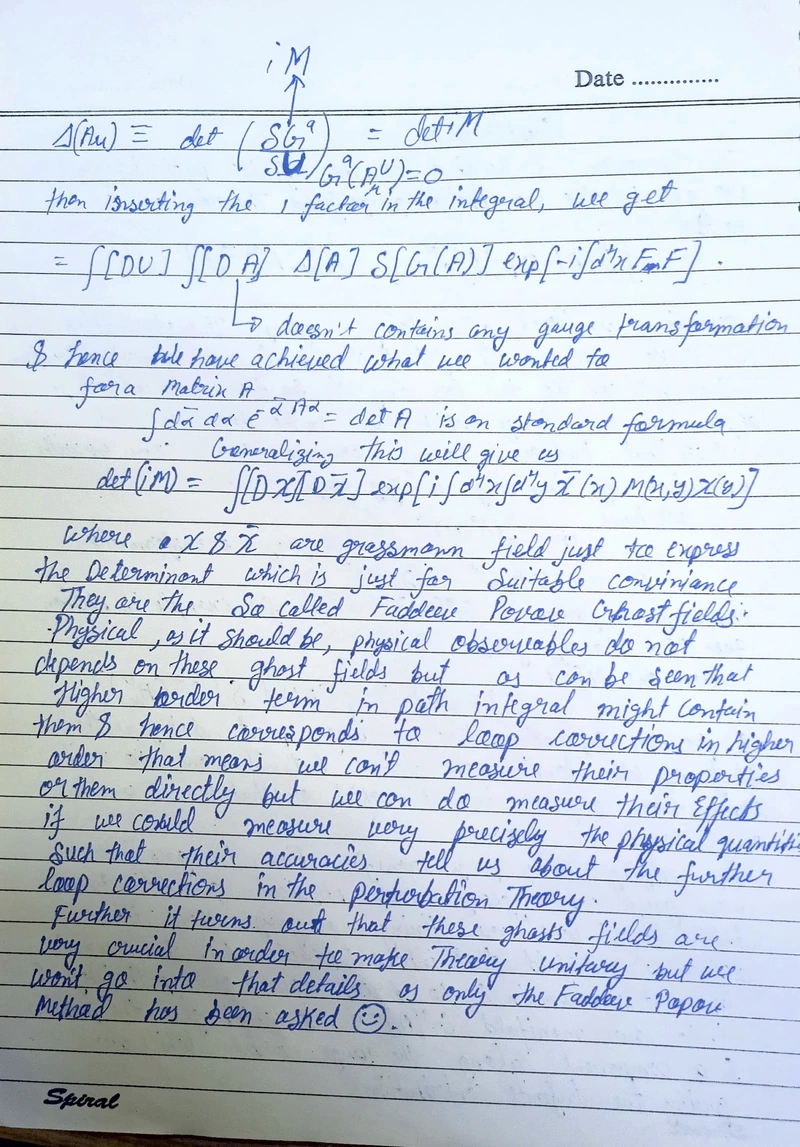 iM
Date ..............
Δ(Aμ) ≡ det (δGᵃ/δU)Gᵃ(Aᵁμ)=0 = det iM
then inserting the 1 factor in the integral, we get
= ∫[DU] ∫[DA] Δ[A] δ[G(A)] exp[-i∫d⁴x F F] .
↳ doesn't contains any gauge transformation
& hence we have achieved what we wanted to
for a matrix A
∫dᾱ dα e^-ᾱAα = det A is an standard formula
Generalizing this will give us
det(iM) = ∫[Dχ][Dχ̄] exp[i∫d⁴x∫d⁴y χ̄(x) M(x,y)χ(y)]
where χ & χ̄ are grassmann field just to express
the Determinant which is just for Suitable conviniance
They are the So called Faddeev Povov Ghost fields.
Physical, as it should be, physical observeables do not
depends on these ghost fields but as can be seen that
Higher order term in path integral might contain
them & hence corresponds to loop corrections in higher
order that means we can't measure their properties
or them directly but we can do measure their Effects
if we could measure very precisely the physical quantiti
Such that their accuracies tell us about the further
loop corrections in the perturbation Theory.
Further it turns out that these ghosts fields are
very crucial in order to make Theory unitary but we
won't go into that details as only the Faddeev Popov
Method has been asked ☺.
Spiral